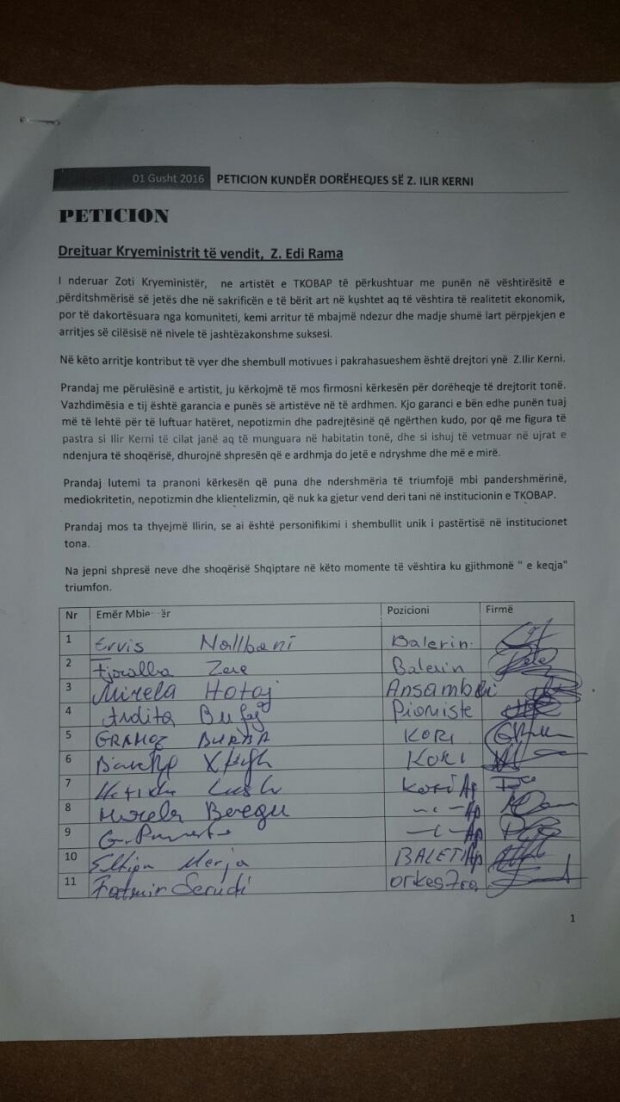 01 Gusht 2016 PETICION KUNDËR DORËHEQJES SË Z. ILIR KERNI
PETICION
Drejtuar Kryeministrit të vendit, Z. Edi Rama
I nderuar Zoti Kryeministër, ne artistët e TKOBAP të përkushtuar me punën në vështirësitë e
përditshmërisë së jetës dhe në sakrificën e të bërit art në kushtet aq të vështira të realitetit ekonomik,
por të dakortësuara nga komuniteti, kemi arritur të mbajmë ndezur dhe madje shumë lart përpjekjen e
arritjes së cilësisë në nivele të jashtëzakonshme suksesi.
Në këto arritje kontribut të vyer dhe shembull motivues i pakrahasueshem është drejtori ynë Z.Ilir Kerni.
Prandaj me përulësinë e artistit, ju kërkojmë të mos firmosni kërkesën për dorëheqje të drejtorit tonë.
Vazhdimësia e tij është garancia e punës së artistëve në të ardhmen. Kjo garanci e bën edhe punën tuaj
më të lehtë për të luftuar hatëret, nepotizmin dhe padrejtësinë që ngërthen kudo, por që me figura të
pastra si Ilir Kerni të cilat janë aq të munguara në habitatin tonë, dhe si ishuj të vetmuar në ujrat e
ndenjura të shoqërisë, dhurojnë shpresën që e ardhmja do jetë e ndryshme dhe më e mirë.
Prandaj lutemi ta pranoni kërkesën që puna dhe ndershmëria të triumfojë mbi pandershmërinë,
mediokritetin, nepotizmin dhe klientelizmin, që nuk ka gjetur vend deri tani në institucionin e TKOBAP.
Prandaj mos ta thyejmë Ilirin, se ai është personifikimi i shembullit unik i pastërtisë në institucionet
tona.
Na jepni shpresë neve dhe shoqërisë Shqiptare në këto momente të vështira ku gjithmonë " e keqja"
triumfon.
Nr Emër Pozicioni Firmë
1 Ervis Nallbani Balerin
2 Balerin
3 Mirela Hotaj
4 Ardita
5 GRAMOZ BURBA KORI
6 KORI
7
8 Mirela Beregu
9
10 Merja BALETI
11 Fatmir
1